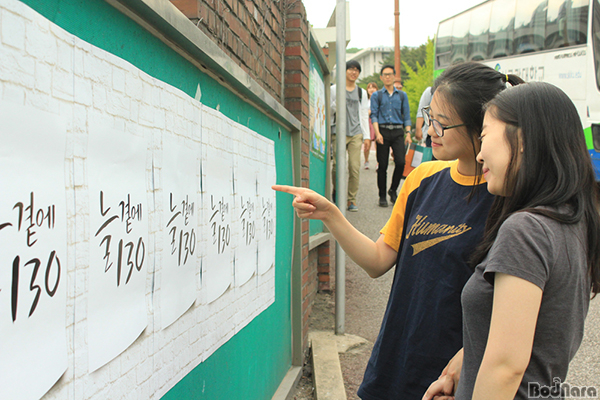 늘곁에
130
늘곁에
130
늘곁에
130
늘곁에
130
늘곁에
130
늘곁에
130
Humanitas
BodNara